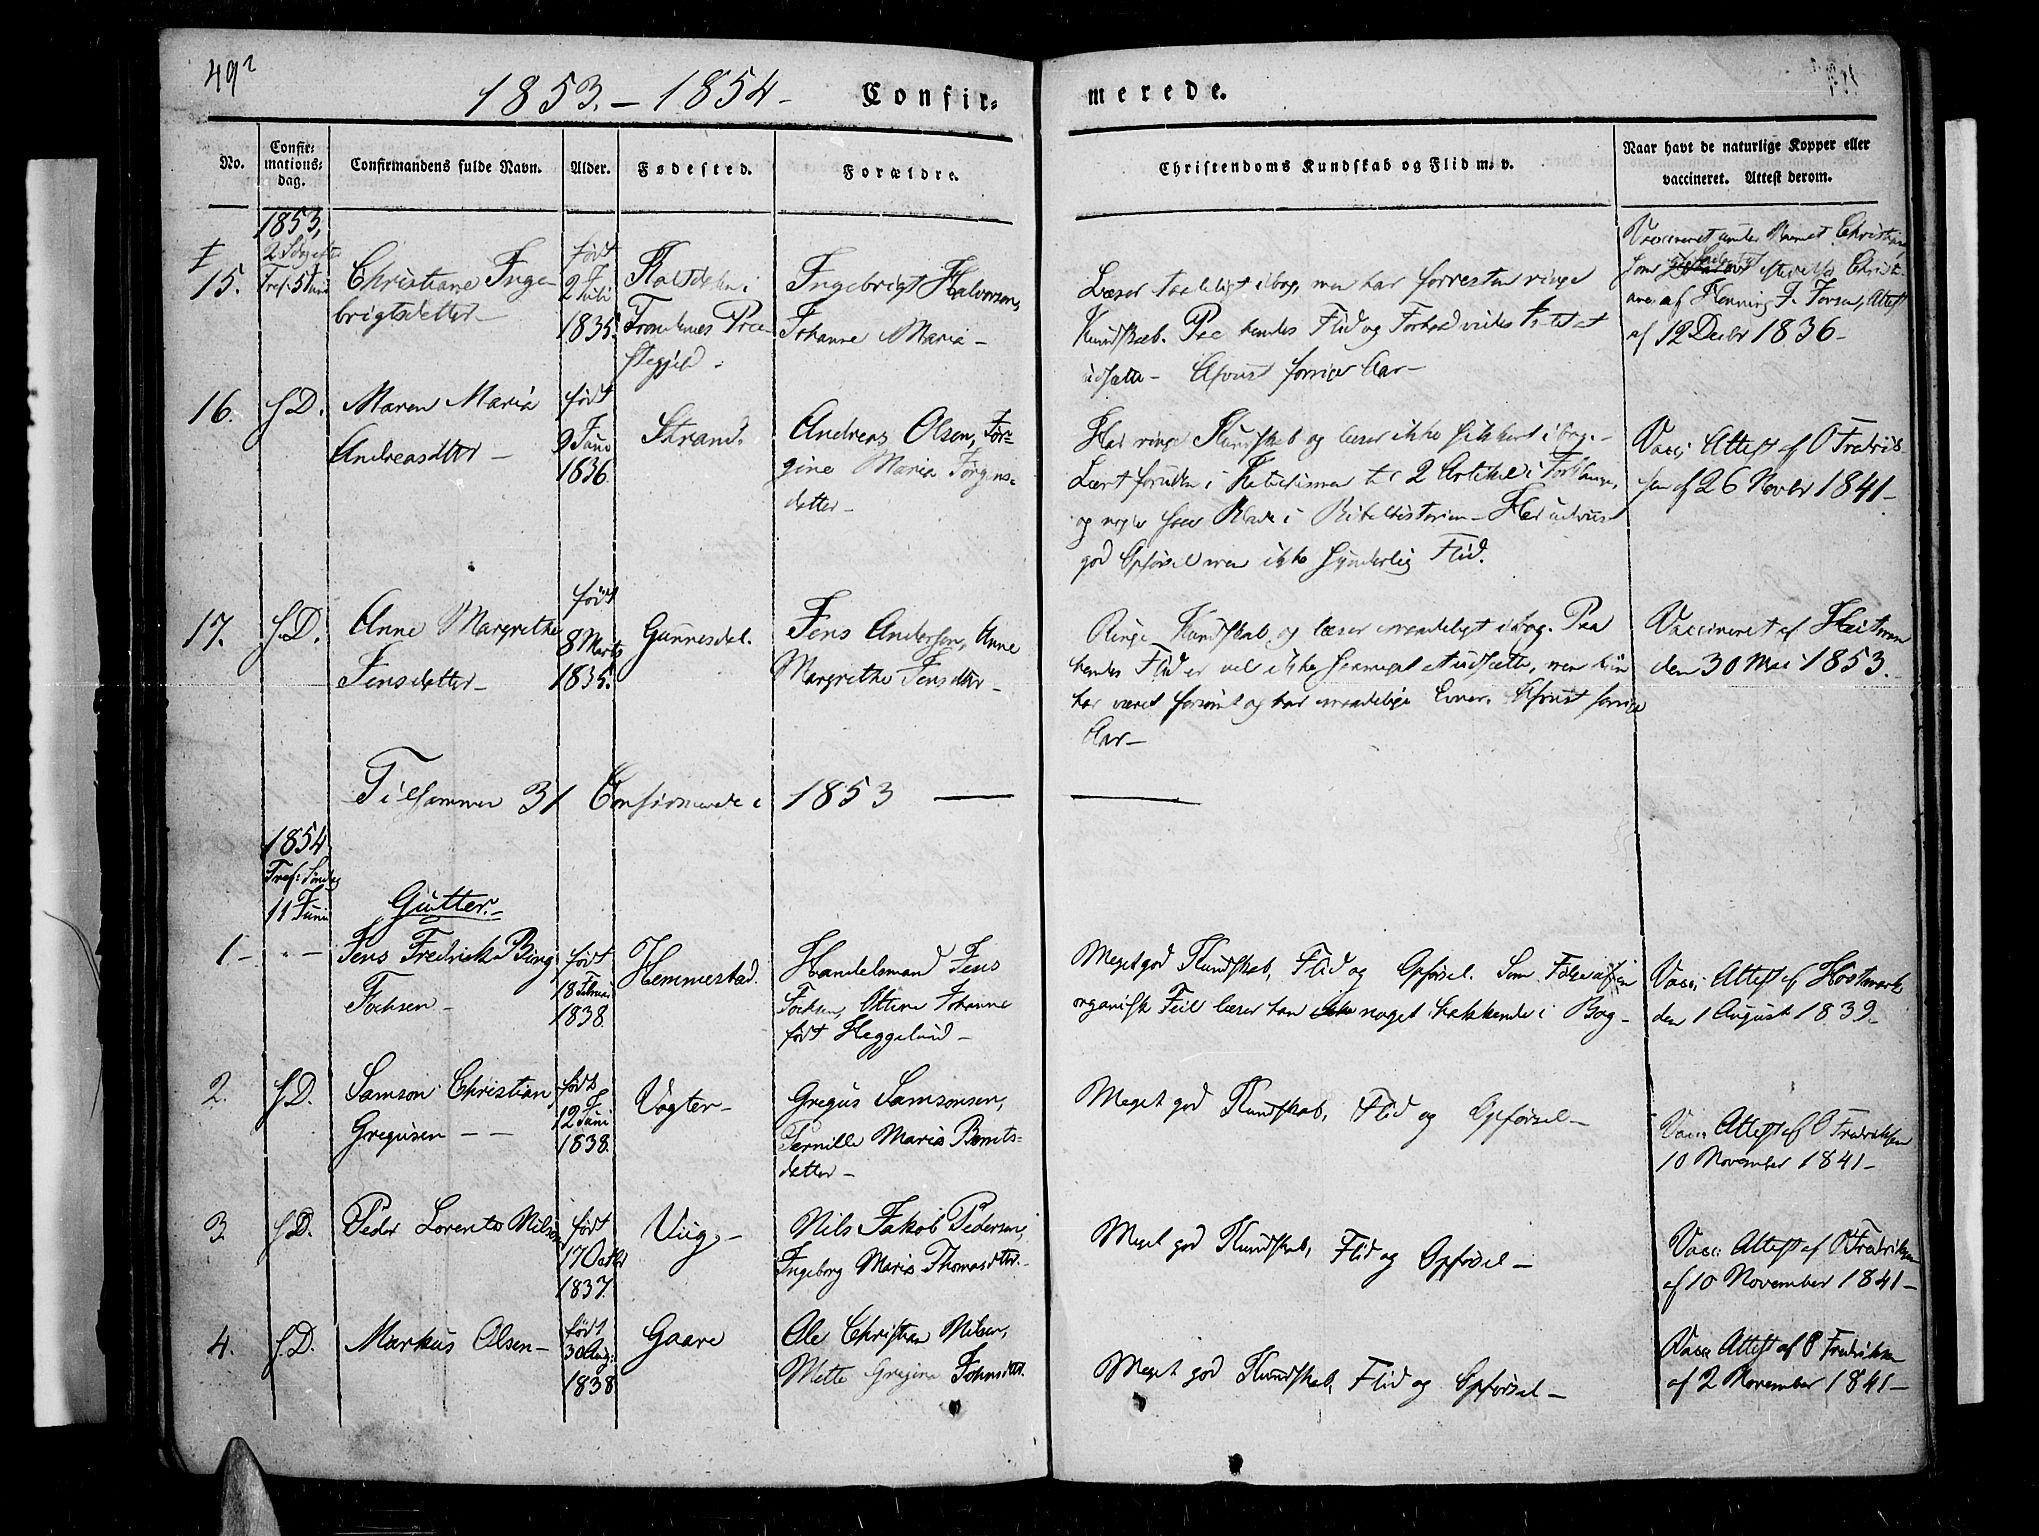 492
1853. – 1854 –
Confir=
merede.
No.
Confir=
mations=
dag.
Confirmandens fulde Navn.
Alder.
Fødested.
Forældre.
Christendoms Kundskab og Flid m. v.
Naar havt de naturlige Kopper eller
vaccineret. Attest derom.
1853,
15.
Tref: 5 Juni
Christiane Inge
brigtsdatter –
født
2 Juli
1835.
Trondenes Præ
stegjeld.
Ingebrigt Halvorsen,
Johanne Maria –
Læser taaleligt i bog, men har forresten ringe
Kundskab. Paa hendes Flid og Forhold vides Intet at
udsætte – Afvist forrige Aar –
Vaccineret under Navnet Christian
af 12 Decbr 1836 –
16.
s. D.
Maren Maria
Andreasdtter –
født
9 Juni
1836.
Strand.
Andreas Olsen, Jør=
gine Maria Jørgens=
datter –
Har ringe Kundskab og læser ikke sikkert i bog. –
Lært foruden i Katechismen til 2 Artikel i Forklaringen,
og nogle faae Blade i Bibelhistorien – Har udviist
god Opførsel men ikke synderlig Flid.
Vacc: Attest af O Fredrik
sen af 26 Novbr 1841 –
17.
s. D.
Anne Margrethe
Jensdatter –
født
8 Marts
1835.
Gunnesdal.
Jens Andersen, Anne
Margrethe Jensdtter –
Ringe Kundskab og læser maadeligt i bog. Paa
hendes Flid er vel ikke saameget at udsætte, men hun
har været forsømt og har maadelige Evner. Afvist forrige
Aar –
Vaccineret af Heitman
den 30 Mai 1853.
Tilsammen 31 Confirmerede i 1853 –
1854
Tref: Søndag
11 Juni
Gutter. –
1 –
Jens Fredrik Bing
Fochsen –
født
18 Februar
1838.
Hemmestad.
Handelsmand Jens
Fochsen, Ottine Johanne
født Heggelund –
Meget god Kundskab, Flid og Opførsel. Som Følge af en
organisk Feil læser han noget hakkende i Bog –
Vacc: Attest af Hostmark
den 1 August 1839 –
2.
s. D.
Samson Christian
Gregusen – –
født
12 Juni
1838.
Vagter –
Gregus Samsonsen,
Pernille Maria Bernts=
datter –
Meget god Kundskab, Flid og Opførsel –
Vacc: Attest af O Fredriksen
10 November 1841 –
3
s. D.
Peder Lorents Nilsen
født
17 Octbr
1837.
Viig –
Nils Jakob Pedersen,
Ingeborg Maria Thomasdtter. –
Meget god Kundskab, Flid og Opførsel –
Vacc: Attest af O Fredriksen
af 10 November 1841 –
4.
s. D.
Markus Olsen –
født
30 Aug:
1838
Gaare
Ole Christian Nilsen,
Mette Gregine Johnsdtter.
Meget god Kundskab, Flid og Opførsel –
Vacc: Attest af O Fredriksen
af 2 November 1841 –